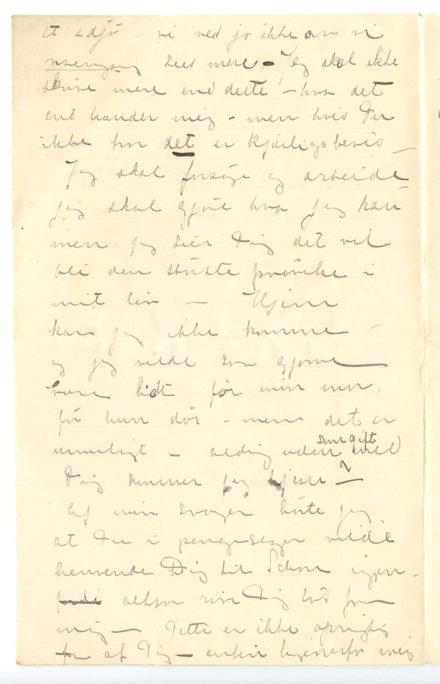 et adjø – vi ved jo ikke om vi
nœengang sees mere – Jeg skal ikke
skrive mere end dette – hva det
end hænder mig – men hvis Du
ikke tror det er kjærligsbevis –
Jeg skal forsøge og arbeide
jeg skal gjøre hva jeg kan
men jeg sier Dig det vil
bli den største prøvelse i
mit liv – Hjem
kan jeg ikke komme –
og jeg vilde saa gjerne
være lidt før min mor
før hun dør – men det er
umuligt – aldrig uden som gift med
Dig kommer jeg hjem – ?
Af min svoger hørte jeg
at Du i pengesager vilde
henvende Dig til Schou igjen –
altsaa
mig – Dette er ikke oprigtig
af Dig –